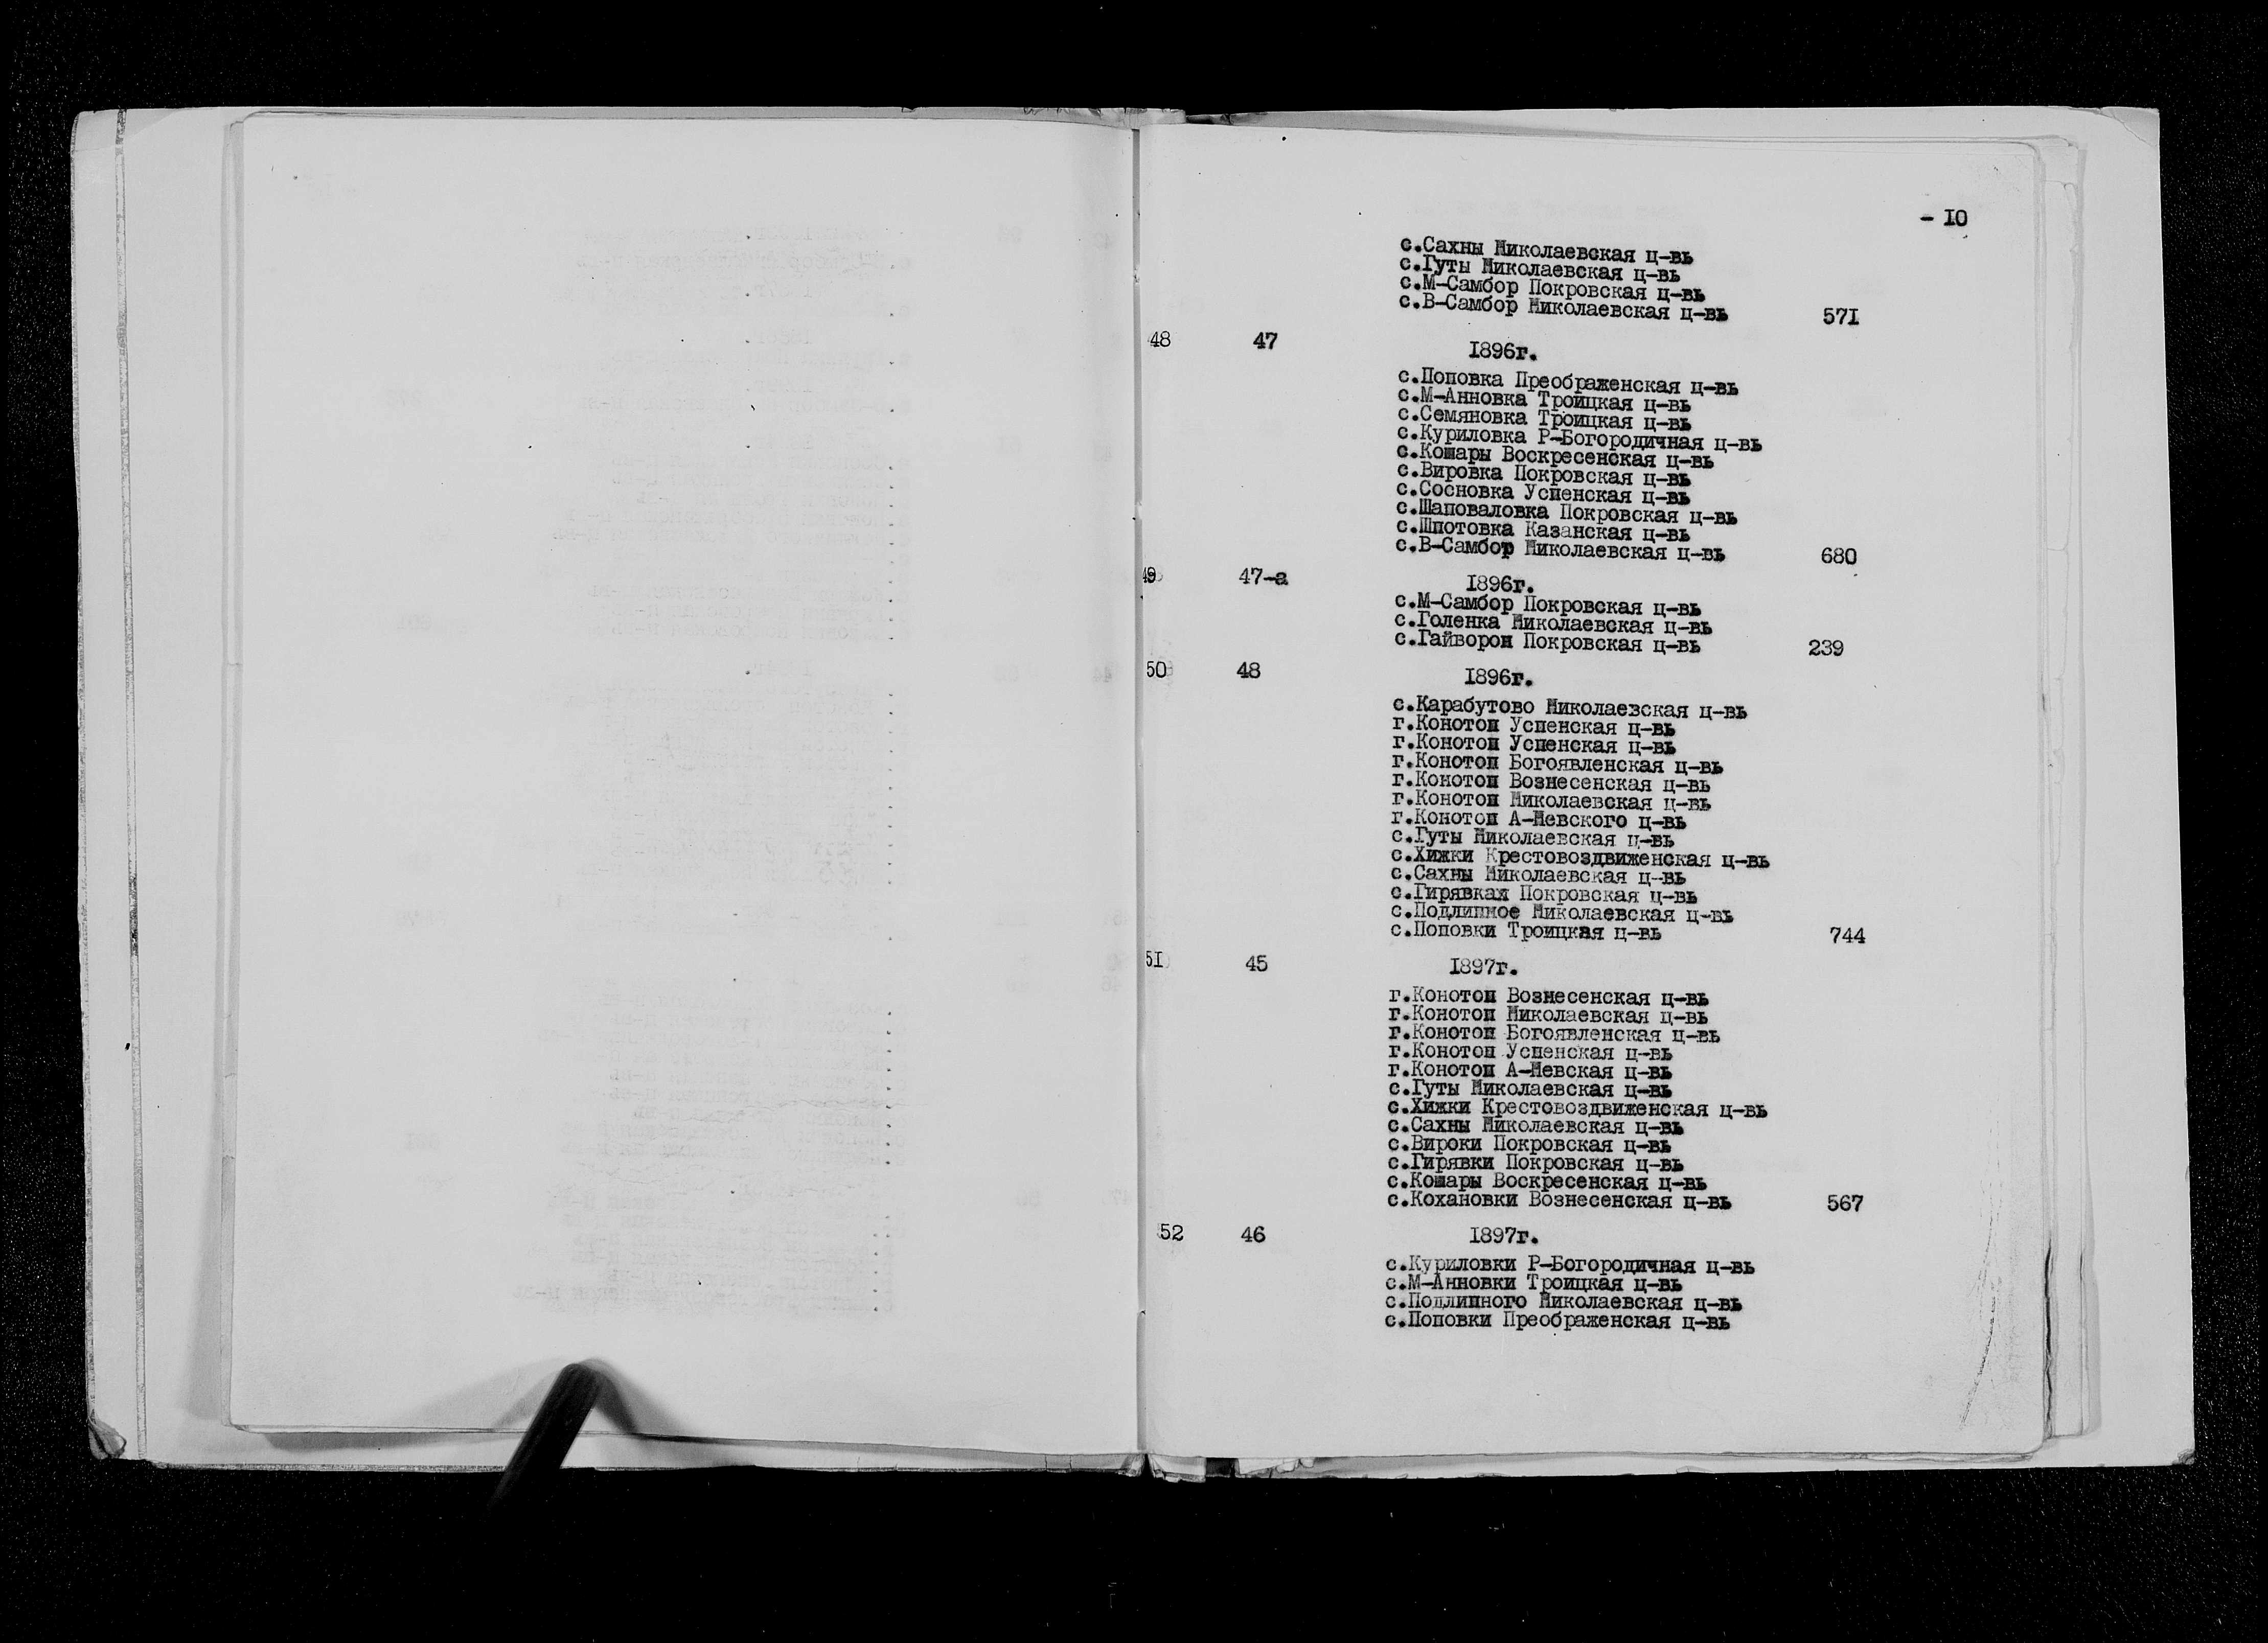 - 10
с.Сахны Николаевская ц-вь
с.Гуты Николаевская ц-вь
с.М-Самбор Покровская ц-вь
с.В-Самбор Николаевская ц-вь 571
48 47 1896г.
с.Поповка Преображенская ц-вь
с.М-Анновка Троицкая ц-вь
с.Семяновка Троицкая ц-вь
с.Куриловка Р-Богородичная ц-вь
с.Кошары Воскресенская ц-вь
с.Вировка Покровская ц-вь
с.Сосновка Успенская ц-вь
с.Шаповаловка Покровская ц-вь
с.Шпотовка Казанская ц-вь
с.В-Самбор Николаевская ц-вь 680
49 47-а 1896г.
с.М-Самбор Покровская ц-вь
с.Голенка Николаевская ц-вь
с.Гайворон Покровская ц-вь 239
50 48 1896г.
с.Карабутово Николаевская ц-вь
г.Конотоп Успенская ц-вь
г.Конотоп Успенская ц-вь
г.Конотоп Богоявленская ц-вь
г.Конотоп Вознесенская ц-вь
г.Конотоп Николаевская ц-вь
г.Конотоп А-Невского ц-вь
с.Гуты Николаевская ц-вь
с.Хижки Крестовоздвиженская ц-вь
с.Сахны Николаевская ц-вь
с.Гирявках Покровская ц-вь
с.Подлипное Николаевская ц-вь
с.Поповки Троицкая ц-вь 744
51 45 1897г.
г.Конотоп Вознесенская ц-вь
г.Конотоп Николаевская ц-вь
г.Конотоп Богоявленская ц-вь
г.Конотоп Успенская ц-вь
г.Конотоп А-Невская ц-вь
с.Гуты Николаевская ц-вь
с.Хижки Крестовоздвиженская ц-вь
с.Сахны Николаевская ц-вь
с.Вироки Покровская ц-вь
с.Гирявки Покровская ц-вь
с.Кошары Воскресенская ц-вь
с.Кохановки Вознесенская ц-вь 567
52 46 1897г.
с.Куриловки Р-Богородичная ц-вь
с.М-Анновки Троицкая ц-вь
с.Подлипного Николаевская ц-вь
с.Поповки Преображенская ц-вь